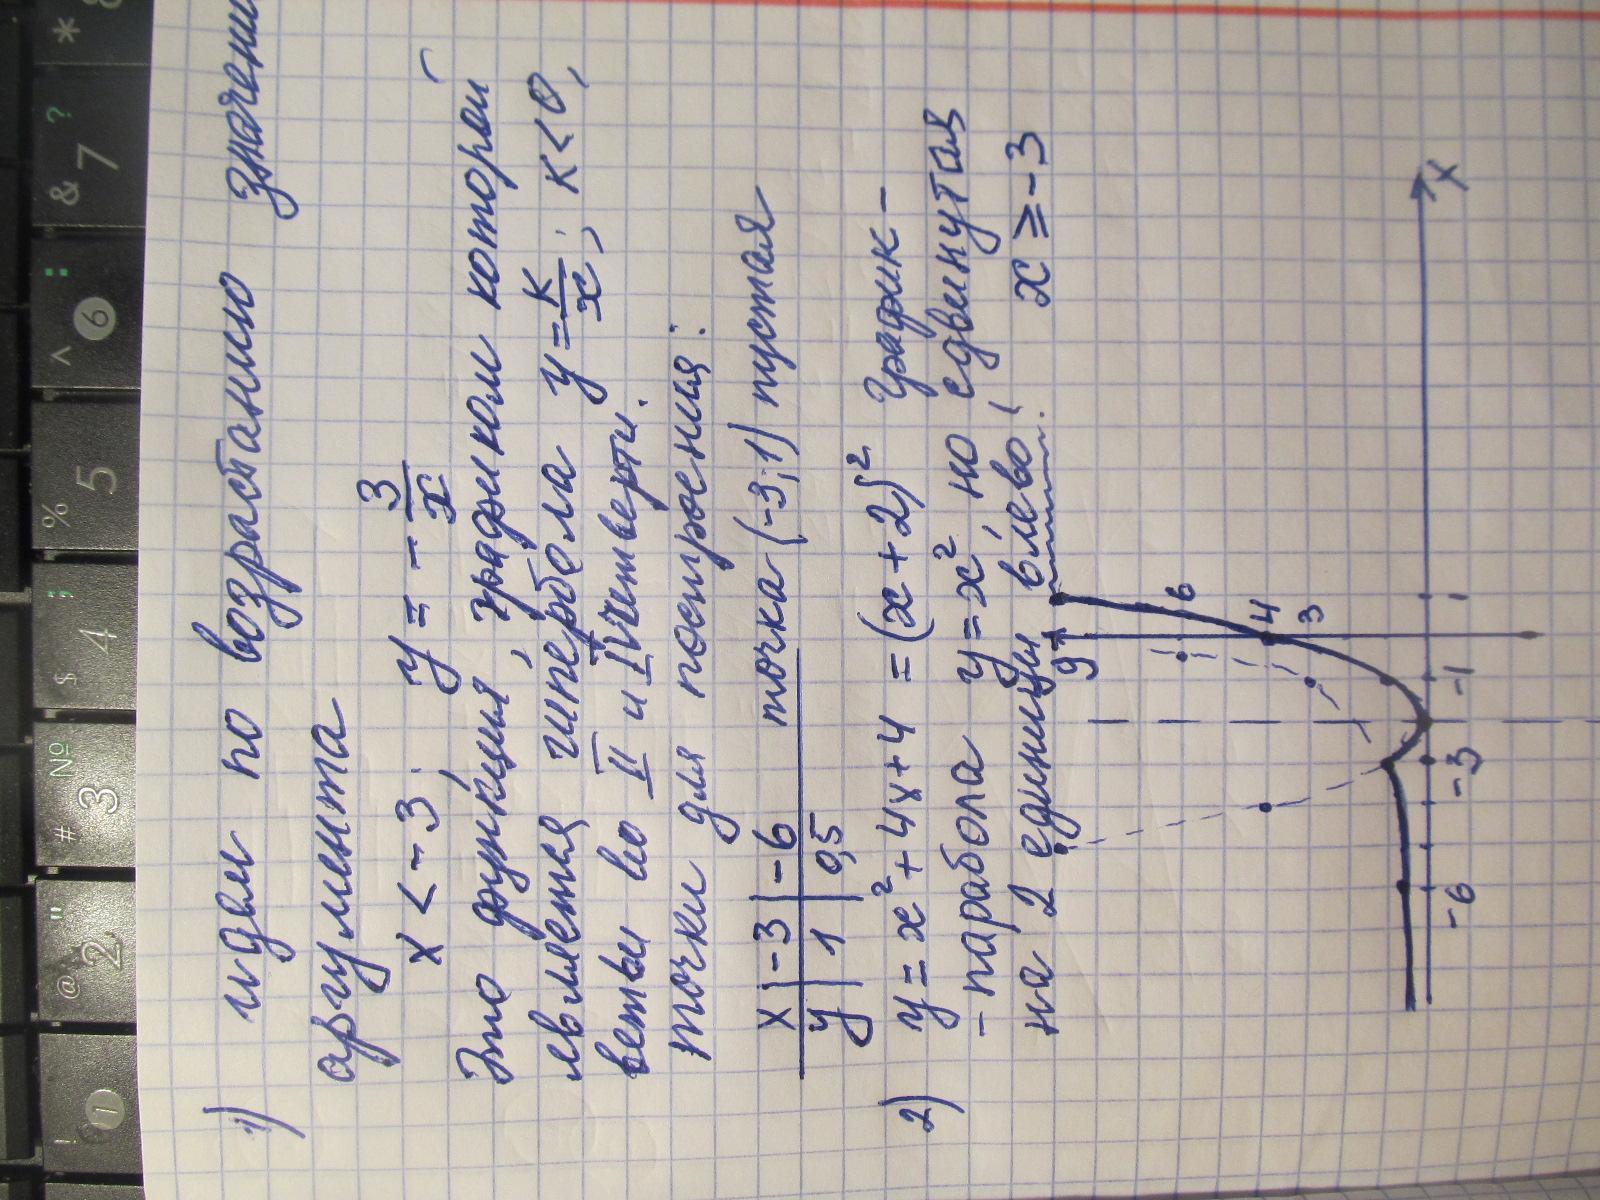 1) идём по возрастанию значени
аргумента
x < -3. y = - 3/x
Это функция, графиком которой
является гипербола y = к/x; к < 0,
ветви во II и IV четверти.
точки для построения:
x | -3 | -6 точка (-3; 1) пустая
y | 1 | 0,5
2) y = x² + 4x + 4 = (x + 2)² График -
- парабола y = x², но сдвинутая
на 2 единицы влево! x ≥ -3
y
6
4
3
-6 -3 -1 1 x
! 1
@ " 2
# № 3
$ ; 4
% 5
^ : 6
& ? 7
* 8